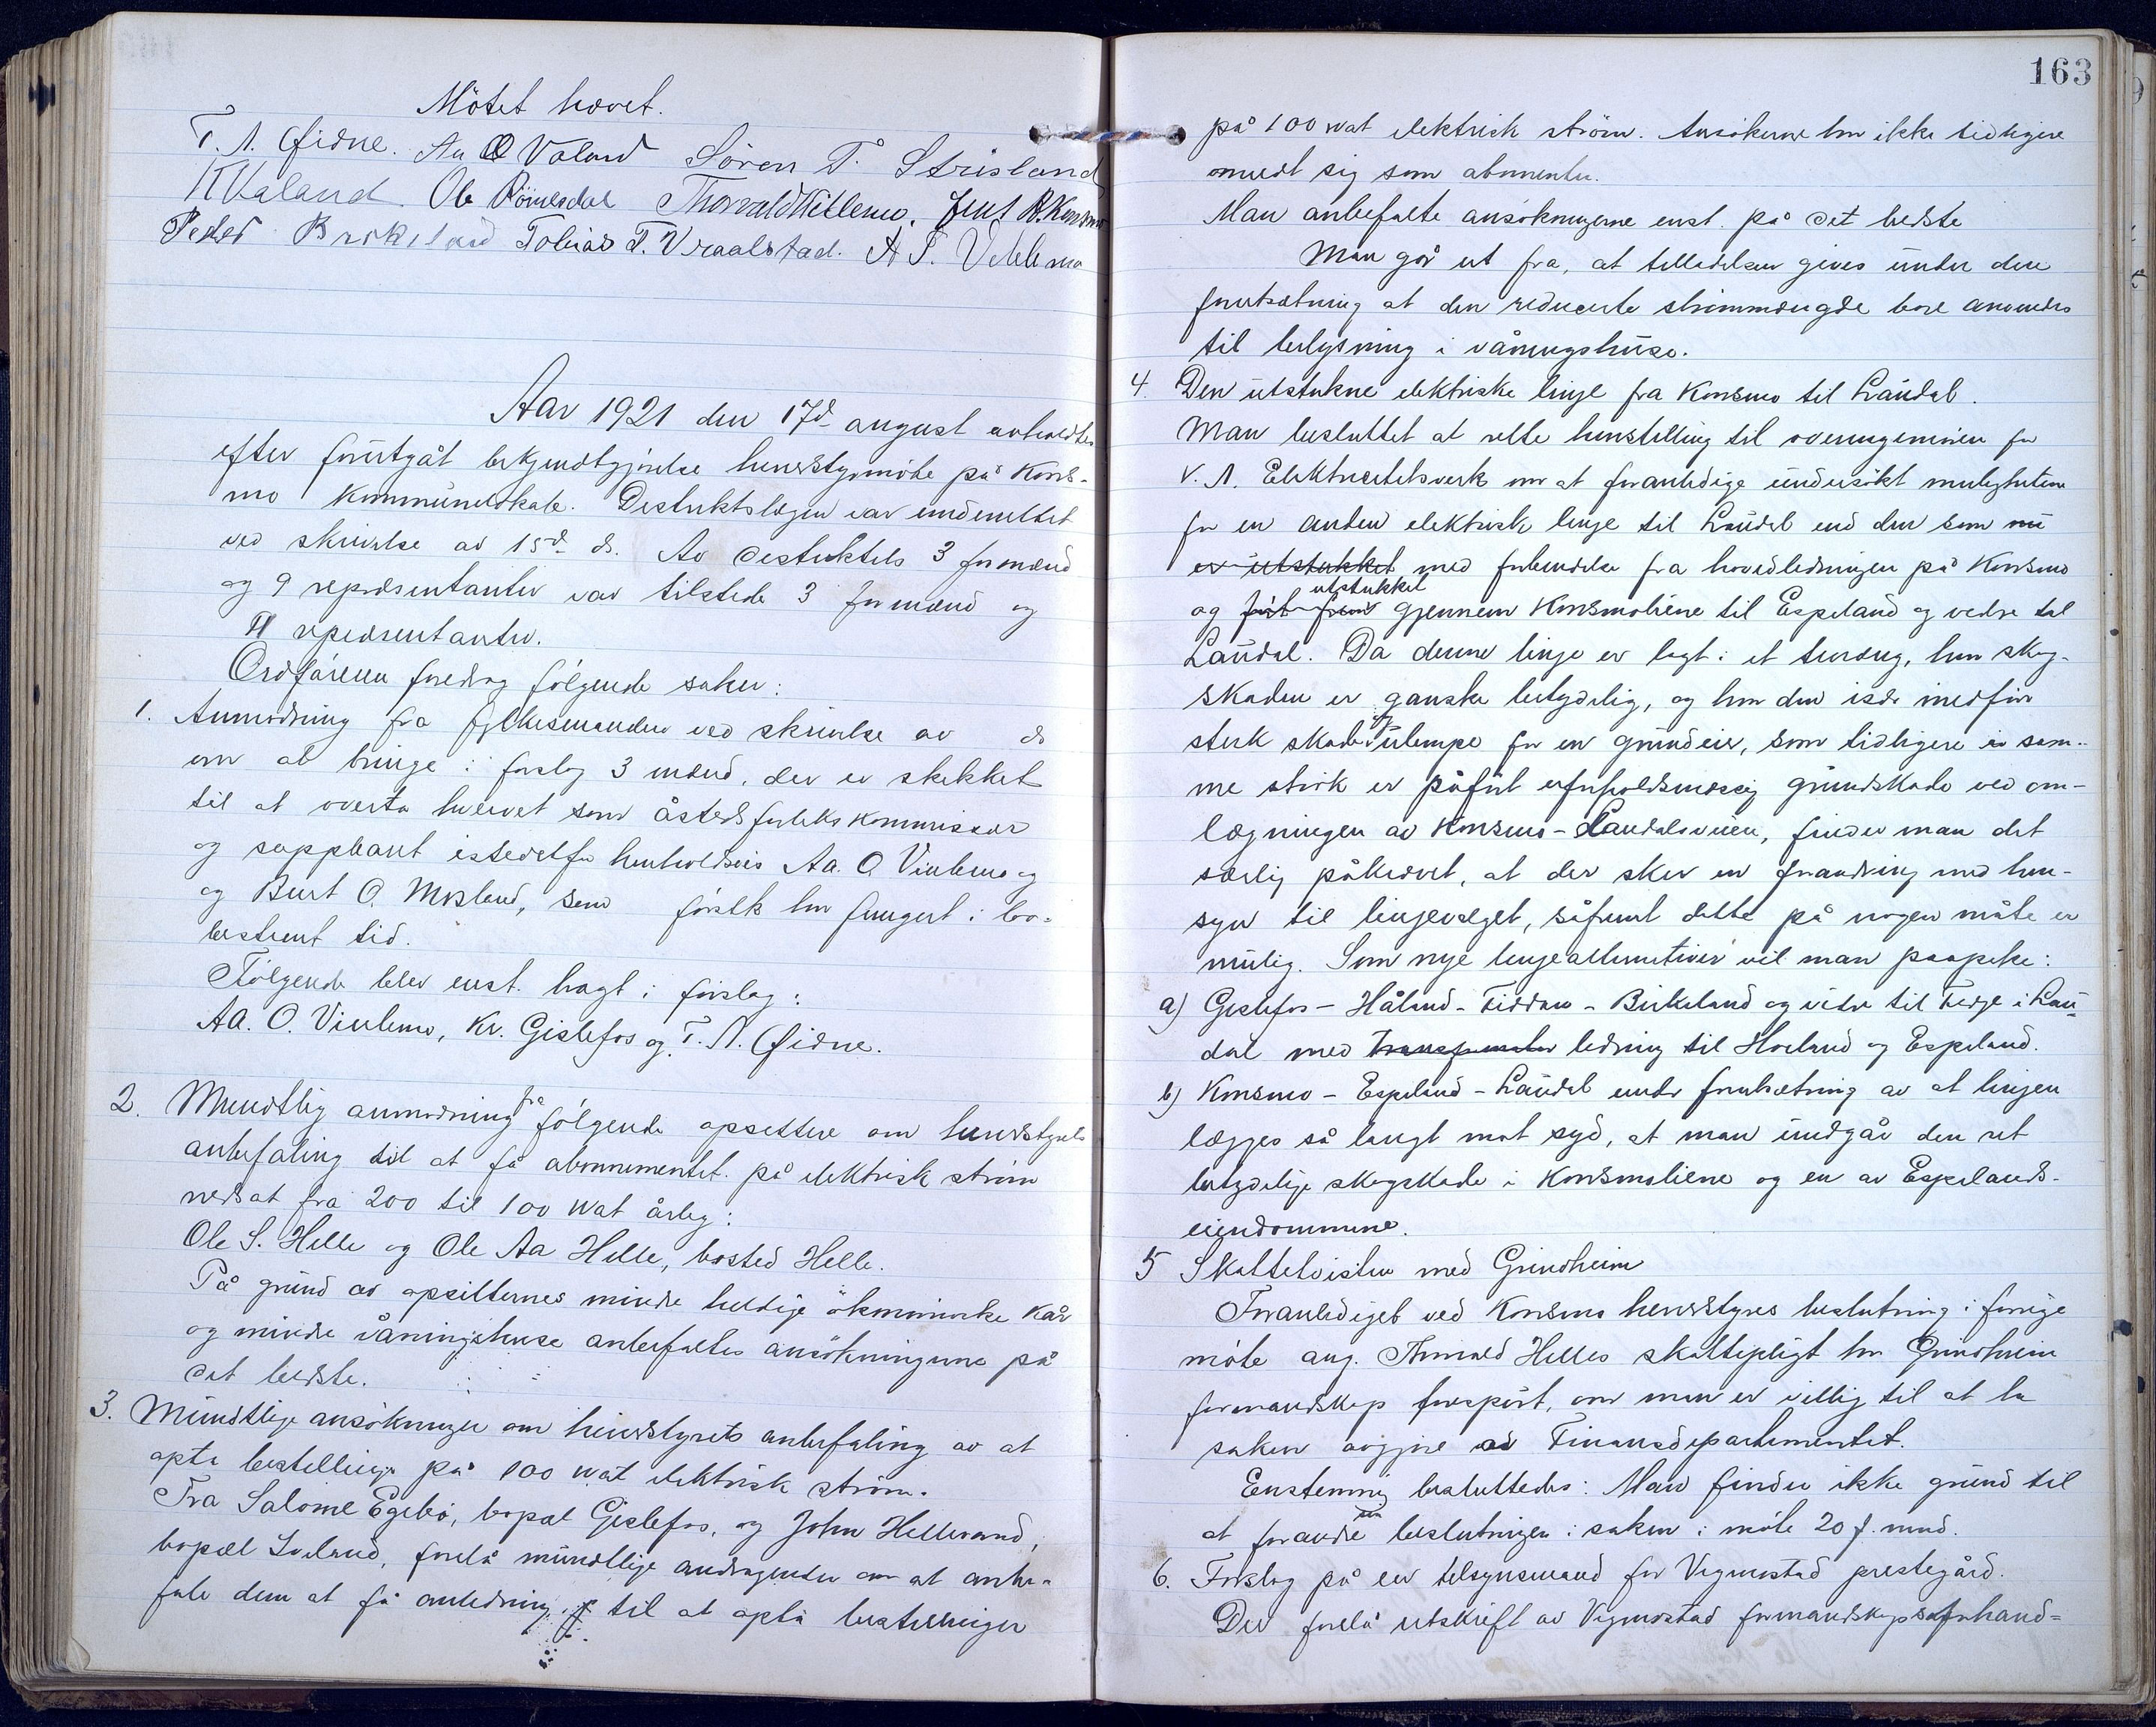 Mötet hævet.
T. A. Øidne. Aa O Valand Sören T. Strisland
K Valand. Ole Römesdal Thorvald Vittemo. Jens B. Konsmo
Peder Birkeland Tobias T. Vraalstad. A T. Vehlemo
Aar 1921 den 17d august avholdtes
efter forutgåt bekjendtgjörelse herredstyrmöte på Kons-
mo kommunelokale. Distriktslægen var underrettet
ved skrivelse av 15d ds. Av distriktets 3 formænd
og 9 repræsentanter var tilstede 3 formænd og
7 repræsentanter.
Ordföreren foredrog fölgende saker:
1. Anmodning fra fylkesmanden ved skrivelse av ds
om at bringe i forslag 3 mænd, der er skikket
til at overta hvervet som åstedsforlikskommissær
og suppleant istedetfor henholdsvis Aa. O. Vivlemo og
og Bent O. Mosland, som forlik har fungert i lov-
bestemt tid.
Fölgende blev enst. bragt i forslag:
Aa. O. Vivlemo, Kr. Gislefos og T. A. Øidne.
2. Mundtlig anmodning fra fölgende opsittere om herredstyrets
anbefaling til at få abonnementet på elektrisk ström
nedsat fra 200 til 100 wat årlig:
Ole S. Helle og Ole Aa Helle, bosted Helle.
På grund av opsitternes mindre heldige ökonomiske kår
og mindre våningshuse anbefaltes ansökningerne på
det bedste.
3. Mundtlige ansökninger om herredstyrets anbefaling av at
opta bestillinger på 100 wat elektrisk ström.
Fra Salome Egebö, bopæl Gislefos, og John Hellevand,
bopæl Loland, forelå mundtlige andragender om at anbe-
fale dem at få anledning til at opta bestillinger
163
på 100 wat elektrisk ström. Ansökerne har ikke tidligere
anmeldt sig som abonnenter.
Man anbefalte ansökningerne enst. på det bedste
Man går ut fra, at tilladelsen gives under den
forutsætning at den reducerte strömmængde bare anvendes
til belysning i våningshuse.
4. Den utstukne elektriske linje fra Konsmo til Laudal.
Man besluttet at rette henstilling til overingeniören for
V. A. Elektricitetsverk om at foranledige undersökt mulighetene
for en anden elektrisk linje til Laudal end den som nu
er utstukket med forbindelse fra hovedledningen på Konsmo
og fört frem utstukket gjennem Konsmoliene til Espeland og vedre til
Laudal. Da denne linje er lagt i et terræng, hvor skog-
skaden er ganske betydelig, og hvor den især medförer
sterk skade og ulempe for en grundeier, som tidligere i sam-
me strök er påfört uforholdsmæssig grundskade ved om-
lægningen av Konsmo-Laudalsveien, finder man det
særlig påkrævet, at der sker en forandring med hen-
syn til linjevalget, såfremt dette på nogen måte er
mulig. Som nye linjealternativer vil man paapeke:
a) Gislefos - Håland - Fiddan - Birkeland og videre til Ferge i Lau-
dal med transformator ledning til Hoeland og Espeland.
b) Konsmo - Espeland - Laudal under forutsætning av at linjen
lægges så langt mot syd, at man undgår den ret
betydelige skogskade i Konsmoliene og en av Espelands-
eiendommene.
5 Skattetvisten med Grindheim
Foranlediget ved Konsmo herredstyres beslutning i forrige
möte ang. Arnold Helles skattepligt har Grindheim
formandskap forespört, om man er villig til at la
saken avgjöre av Finansdepartementet.
Enstemmig besluttedes: Man finder ikke grund til
at forandre sin beslutningen i saken i möte 20 f. mnd.
6. Forslag på en tilsynsmand for Vigmostad prestegård.
Der forelå utskrift av Vigmostad formandskapsforhand-